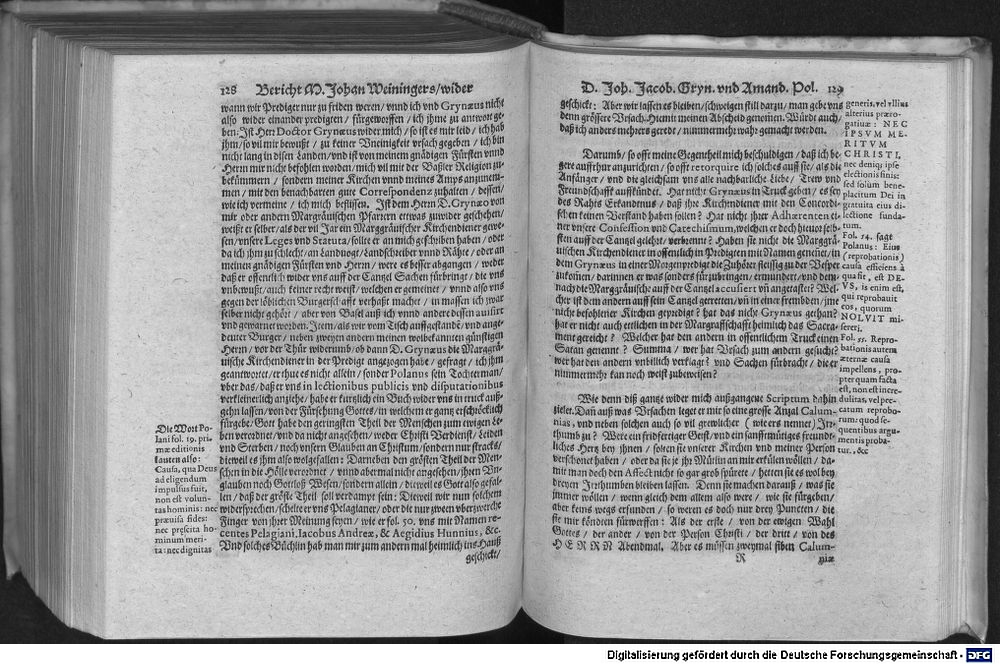 128 Bericht M. Johan Weiningers/wider
wann wir Prediger nur zu friden weren/ vnnd ich vnd Grynæus nicht
also wider einander prediget/ fürgeworffen/ ich jhme zu antwort ge-
ben. Ist Herr Doctor Grynæus wider mich/ so ist es mir leid/ ich hab
jhm/ so vil mir bewußt/ zu keiner Vneinigkeit vrsach gegeben/ ich bin
nicht lang in disen Landen/ vnd ist von meinem gnädigen Fürsten vnnd
Herrn mir nicht befohlen worden/ mich vil mit der Baßler Religion zu-
bekümmern/ sondern meiner Kirchen vnnd meines Ampts anzunem-
men/ mit den benachbarten gute Correspondenz zuhalten/ dessen/
wie ich vermeine/ ich mich beflissen. Ist dem Herrn D. Grynæo von
mir oder andern Margräuischen Pfarrern etwas zuwider geschehen/
weißt er selber/ als der vil Jar ein Marggräuischer Kirchendiener gewe-
sen/ vnsere Leges vnd Statuta/ sollte er an mich geschriben haben/ oder
da ich jhm zu schlecht/ an Landuogt/ Landschreiber vnnd Rähte/ oder an
meinen gnädigen Fürsten vnd Herrn/ were es besser abgangen/ weder
daß er offentlich wider vns auff der Cantzel Sachen fürbringt/ die vns
vnbewußt/ auch keiner recht weist/ welchen er gemeinet/ vnnd also vns
gegen der löblichen Burgerschafft verhaßt machet/ in massen ich zwar
selber nicht gehört/ aber von Basel auß ich vnnd andere dessen auisirt
vnd gewarnet worden. Item/ als wir vom Tisch auffgestanden/ vnd ange-
deuter Burger/ neben zweyen andern meinen wolbekannten günstigen
Herrn/ vor der Thür widerumb/ ob dann D. Grynæus die Marggrä-
uische Kirchendiener in der Predigt angezogen habe/ gefragt/ ich jhm
geantwortet/ er thue es nicht allein/ sonder Polanus sein Tochterman/
vber das/ daß er vns in lectionibus publicis vnd disputationibus
verkleinerlich anziehe/ habe er kurtzlich ein Buch wider vns in truck auß-
gehn lassen/ von der Fürsehung Gottes/ in welchem er gantz erschröcklich
fürgebe/ Gott habe den geringsten Theil der Menschen zum ewigen Le-
ben verordnet/ vnd da nicht angesehen/ weder Christi Verdienst/ Leiden
vnd Sterben/ noch vnsern Glauben an Christum/ sondern nur stracks/
dieweil es jhm also wolgefallen: Darneben den grösten Theil der Men-
schen in die Hölle verordnet/ vnnd abermal nicht angesehen/ jhren Vn-
glauben noch Gottloß Wesen/ sondern allein/ dieweil es Gott also gefal-
len/ daß der gröste Theil soll verdampt sein: Dieweil wir nun solchem
widersprechen/ schelte er vns Pelagianer/ oder die nur zween vberzwerche
Finger von jhrer Meinung seyen/ wie er fol. 50. vns mit Namen re-
centes Pelagiani, Iacobus Andreæ, & Aegidius Hunnius, &c.
Vnd solches Büchlin hab man mir zum andern mal heimlich ins Hauß
geschickt/
Die Wort Po-
lani fol. 19. pri-
mæ editionis
lauten also:
Causa, qua Deus
ad eligendum
impulsus fuit,
non est volun-
tas hominis: nec
præuisa fides:
nec præscita ho-
minum meri-
ta: nec dignitas
D. Joh. Jacob. Gryn. vnd Amand. Pol. 129
geschickt: Aber wir lassen es bleiben/ schweigen still darzu/ man gebe vns
denn grössere Vrsach. Hiemit meinen Abscheid genommen. Würdt auch/
daß ich anders mehrers geredt/ nimmermehr wahr gemacht werden.
Darumb/ so offt meine Gegentheil mich beschuldigen/ daß ich be-
gere auffrhur anzurichten/ so offt retorquire ich solches auff sie/ als die
Anfänger/ vnd die gleichsam vns alle nachbarliche Liebe/ Trew vnd
Freundschafft auffkündet. Hat nicht Grynæus in Truck geben/ es sey
des Rahts Erkandtnus/ daß jhre Kirchendiener mit den Concordi-
schen keinen Verstand haben sollen? Hat nicht jhrer Adhærenten ei-
ner vnsere Confession vnd Catechismum, welchen er doch hieuor selb-
sten auff der Cantzel gelehrt/ verbrennt? Haben sie nicht die Marggrä-
uischen Kirchendiener in offentlich in Predigten mit Namen genennet/ in
dem Grynæus in einer Morgenpredigt die Zuhörer fleissig zu der Vesper
zukommen/ darinnen er was sonders fürzubringen/ ermundert/ vnd dem-
nach die Marggräuisch auff der Cantzel accusiert vnd angetastet? Wel-
cher ist dem andern auff sein Cantzel getretten/ vnd in einer frembden/ jme
nicht befohlener Kirchen geprediget? hat das nicht Grynæus gethan?
hat er nicht auch ettlichen in der Margraffschafft heimlich das Sacra-
ment gereicht? Welcher hat den andern in offentlichem Truck einen
Satan genennt? Summa/ wer hat Vrsach zum andern gesucht?
wer hat den andern vnbillich verklagt? vnd Sachen fürbracht/ die er
nimmermehr kan noch weist zubeweisen?
Wie denn diß gantze wider mich außgangene Scriptum dahin
zielet. Dann auß was Vrsachen leget er mir so eine grosse Anzal Calum-
nias, vnd neben solchen auch so vil grewlicher (wie ers nennet) Irr-
thumb zu? Were ein fridfertiger Geist/ vnd ein sanfftmütiges freund-
liches Hertz bey jhnen/ solten sie vnserer Kirchen vnd meiner Person
verschonet haben/ oder da sie je jhr Mütlin an mir erkülen wöllen/ da-
mit man doch den Affect nicht so gar grob spürete/ hetten sie es wol bey
dreyen Irrthumben bleiben lassen. Denn sie machen darauß/ was sie
jimmer wöllen/ wenn gleich dem allem also were/ wie sie fürgeben/
aber keins wegs erfunden/ so weren es doch nur drey Puncten/ die
sie mir köndten fürwerffen: Als der erste/ von der ewigen Wahl
Gottes/ der ander/ von der Person Christi/ der dritt/ von des
HERRN Abendmal. Aber es müssen zweymal siben Calum-
R niæ
generis, vel vllius
alterius præro-
gatiuæ: NEC
IPSVM ME-
RITVM
CHRISTI,
nec deniq; ipse
electionis finis:
sed solùm bene-
placitum Dei in
gratuita eius di-
lectione funda-
tum.
Fol. 14. sagt
Polanus: Eius
(reprobationis)
causa efficiens à
qua sit, est DE-
VS, is enim est,
qui reprobauit
eos, quorum
NOLVIT mi-
sereri.
Fol. 55. Repro-
bationis autem
æternæ causa
impellens, pro-
pter quam facta
est, non est incre-
dulitas, vel pec-
catum reprobo-
rum: quod se-
quentibus argu-
mentis proba-
tur, &c
Digitalisierung gefördert durch die Deutsche Forschungsgemeinschaft - DFG